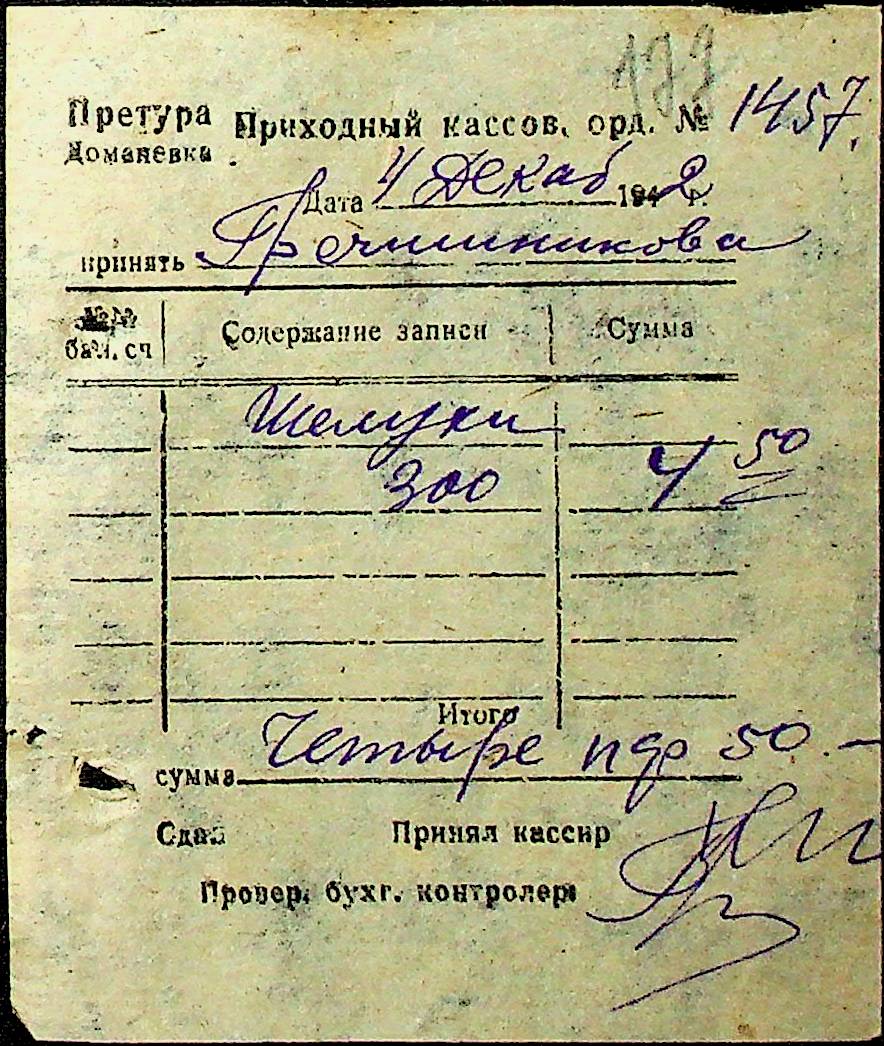 177
Претура Приходный кассов. орд. № 1457.
Доманевка
Дата 4 Декаб 1942 г.
принять Гречишникова
№№ бал. сч Содержание записи Сумма
Шелухи
300 4 50
Итого
сумма Четыре пдр 50 -
Сдал Принял кассир
Провер. бухг. контролер